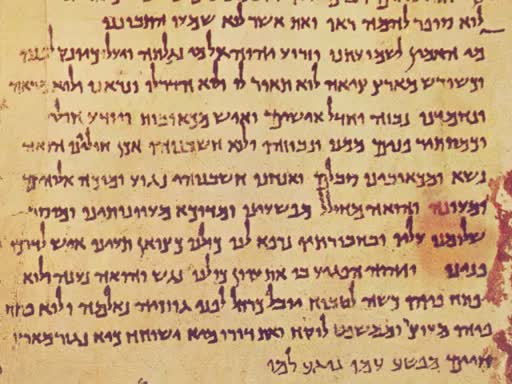 לוא סופר להמה ראו ואת אשר לוא שמעו התבוננו
מי האמין לשמועתנו וזרוע יהוה אל מי נגלתה ויעל כיונק לפניו
וכשורש מארץ ציה לוא תואר לו ולוא הדר לו ונראנו ולוא מראה
ונחמדנו נבזה וחדל אישים ואיש מכאובות ויודע חולי
וכמסתיר פנים ממנו ונבוזהו ולוא חשבנוהו אכן חוליינו הואה
נשא ומכאובינו סבלם ואנחנו חשבנוהו נגוע ומוכה אלוהים
ומעונה והואה מחולל מפשעינו ומדוכא מעוונותינו ומוסר
שלומנו עליו ובחבורתיו נרפא לנו כולנו כצואן תעינו איש לדרכו
פנינו ויהוה הפגיע בו את עוון כולנו נגש והואה נענה ולוא
פתח פיהו כשה לטבוח יובל כרחל לפני גוזזיה נאלמה ולוא פתח
פיהו מעוצר וממשפט לוקח ואת דורו מיא ישוחח כיא נגזר מארץ
חיים מפשע עמו נוגע למו